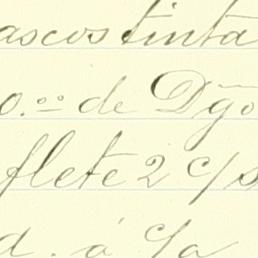 ascos tinta
0.⁰⁰ de Dgo
flete 2 c/s
d. á c/a